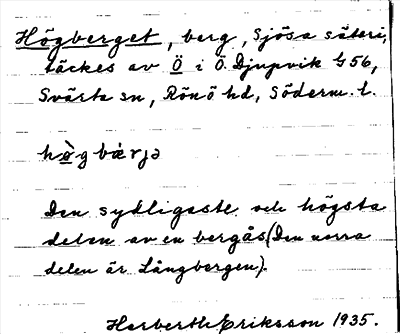 Högberget, berg, Sjösa säteri,
täckes av Ö i Ö. Djupvik G 56,
Svärta sn, Rönö hd, Söderm. l.
hø̀gbærjə
Den sydligaste och högsta
delen av en bergås (Den norra
delen är Långbergen).
Herbert Eriksson 1935.